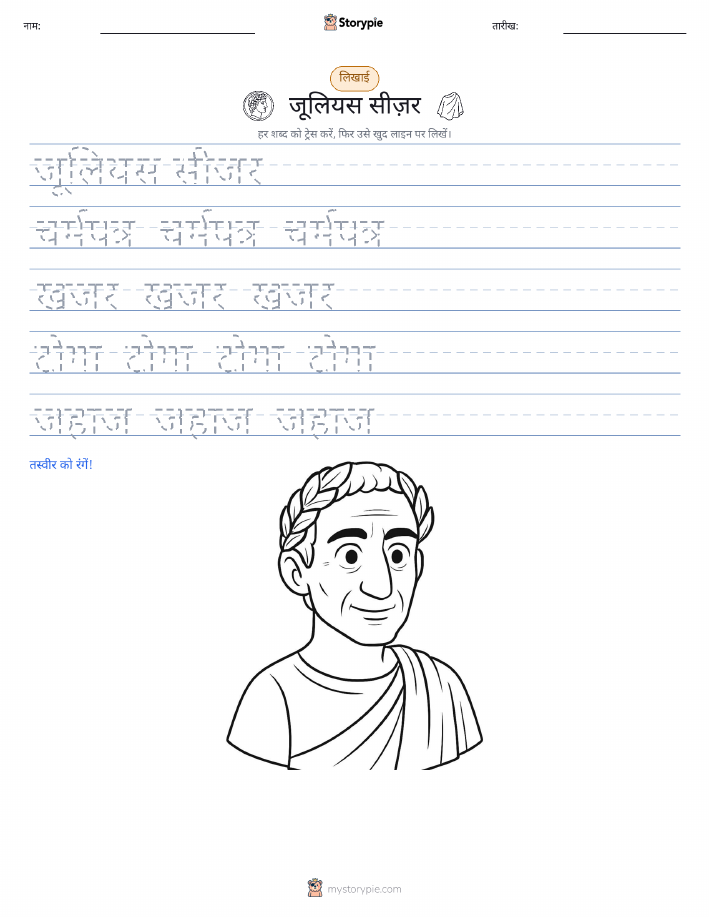 नाम: Storypie तारीख:
लिखाई
जूलियस सीज़र
हर शब्द को ट्रेस करें, फिर उसे खुद लाइन पर लिखें।
जूलियस सीजर
चर्मपत्र चर्मपत्र चर्मपत्र
खजर खजर खजर
टोगा टोगा टोगा टोगा
जहाज जहाज जहाज
तस्वीर को रंगें!
mystorypie.com